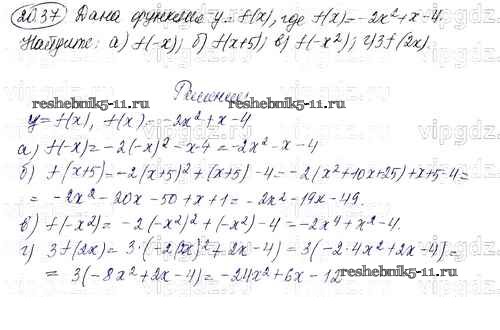 20.37 Дана функция y = f(x), где f(x) = -2x²+x-4.
Найдите: а) f(-x); б) f(x+5); в) f(-x²); г) 3f(2x).
Решение.
reshebnik5-11.ru reshebnik5-11.ru
y = f(x), f(x) = -2x²+x-4
а) f(-x) = -2(-x)²-x-4 = -2x²-x-4
б) f(x+5) = -2(x+5)²+(x+5)-4 = -2(x²+10x+25)+x+5-4 =
= -2x²-20x-50+x+1 = -2x²-19x-49.
в) f(-x2) = -2(-x²)²+(-x²)-4 = -2x⁴+x²-4.
г) 3f(2x) = 3·(-2(2x)²+2x-4) = 3(-2·4x²+2x-4) =
= 3(-8x²+2x-4) = -24x²+6x-12
reshebnik5-11.ru